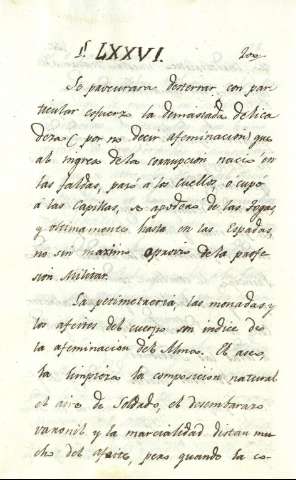 § LXXVI.
Se procurara desterrar, con par
ticular esfuerzo la demasiada delica
deza (por no decir afeminacion) que
al ingreso de la corrupcion nace en
las faldas, pasó a los cuellos, ocupo
à las Capillas, se apodero de las Togas,
y ultimamente hasta en las Espadas,
no sin maximo oprovio de la profe
sion Militar.
La petimetreria, las monadas, y
los afeites del cuerpo son indice de
la afeminacion del Alma. El aseo,
la limpieza la composicion natural
el aire de Soldado, el desembarazo
varonil y la marcialidad distan mu
cho del afeite, pero quando la co-